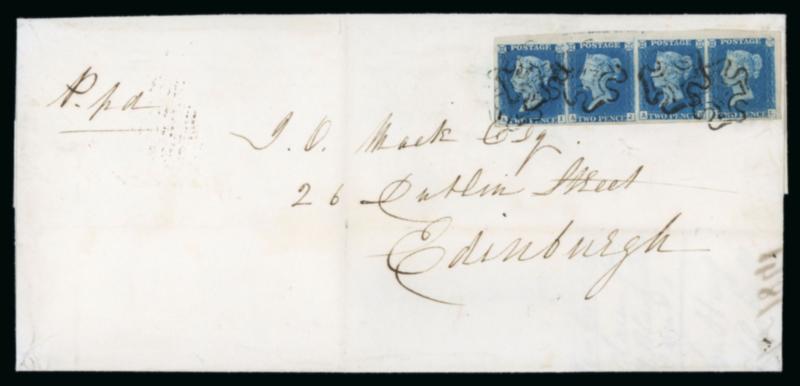 POSTAGE POSTAGE POSTAGE POSTAGE
TWO PENCE TWO PENCE
P. pd
J. O. Mack Esq.
26 Dublin Street
Edinburgh